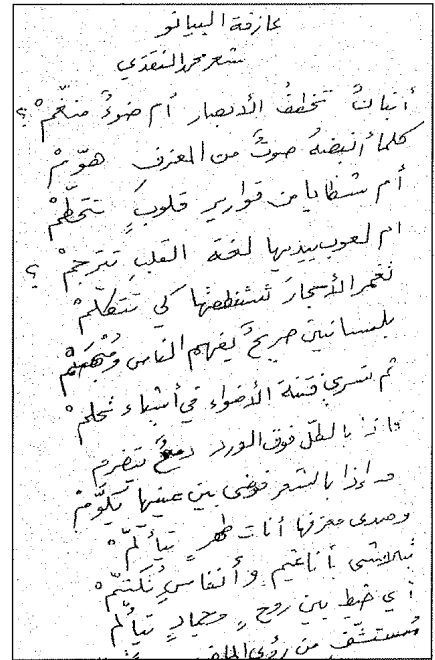 عازفة البيانو
شعر محمد النقدي
أبنانٌ تخطفُ الأبصار أم ضوءٌ منغّمْ ؟
كلما أنبضهُ صوتٌ من المعزف هوّمْ
أم شظايا من قوارير قلوبٍ تتحطّمْ
ام لعوب بيديها لغة القلبِ تترجمْ ؟
تغمر الأسجارَ تستنطقها كي تتكلّمْ
بلسانين صريحٌ يفهم الناس ومُبْهَمْ
ثم تسري فتنة الأضواء في أشياء تحلمْ
فإذا بالطلّ فوق الورد دمعٌ يتضرم
وإذا بالشعر فوضى بين عينيها يكوَّمْ
وصدى معزفها أنات طهرٍ تتألّمْ
تتلاشى بأناغيم وأنفاسٍ تُكتّمْ
أي خيط بين روحٍ وجمادٍ يتألم
من رؤى